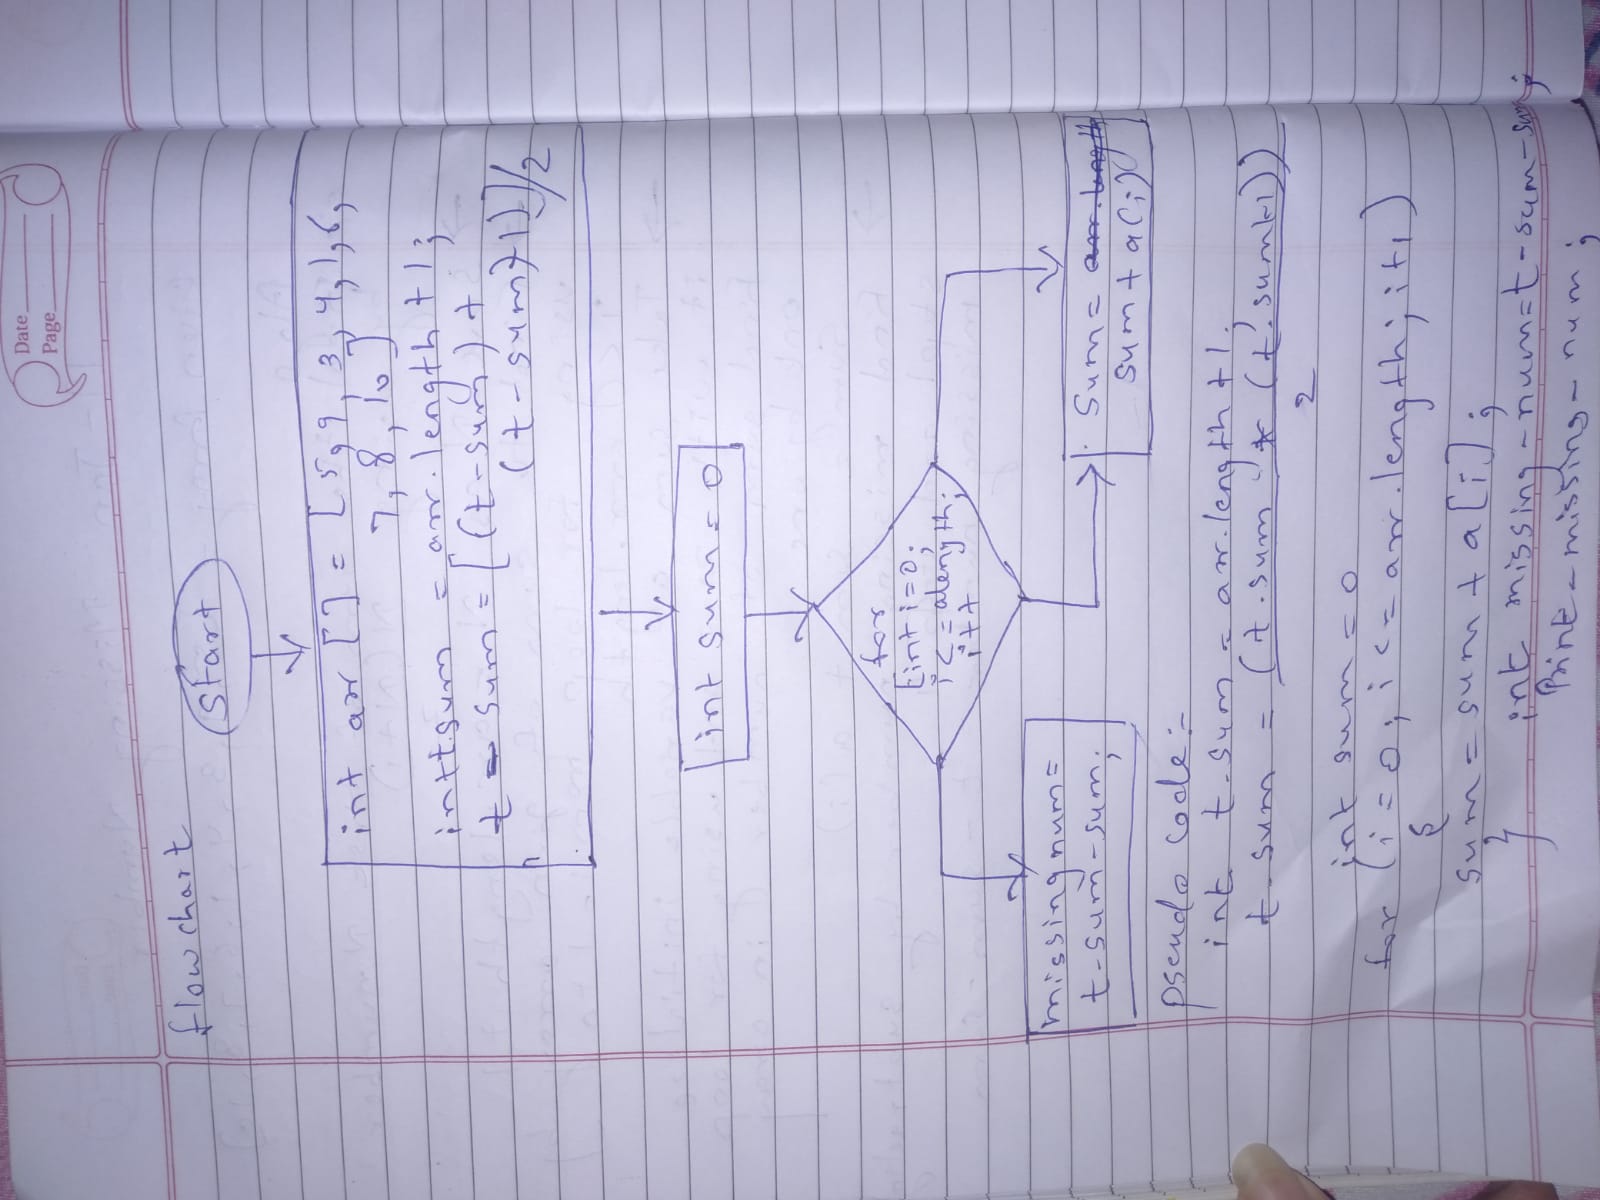 Date
Page
flow chart
Start
int arr [] = [5,9,3,4,1,6,
7,8,10]
int t.sum = arr.length +1;
t - sum = [(t-sum) +
(t-sum)+1)]/2
int sum = 0
for
[int i=0;
i<=alength;
i++
Sum =
Sum + a(i)
missing num =
t-sum-sum;
pseudo code:-
int t-sum = arr.length +1;
t-sum = (t.sum * (t.sum+1))
2
int sum = 0
for (i=0; i<=arr.length; i++)
{
sum = sum + a[i];
}
int missing-num=t-sum-sum;
Print-missing-num;